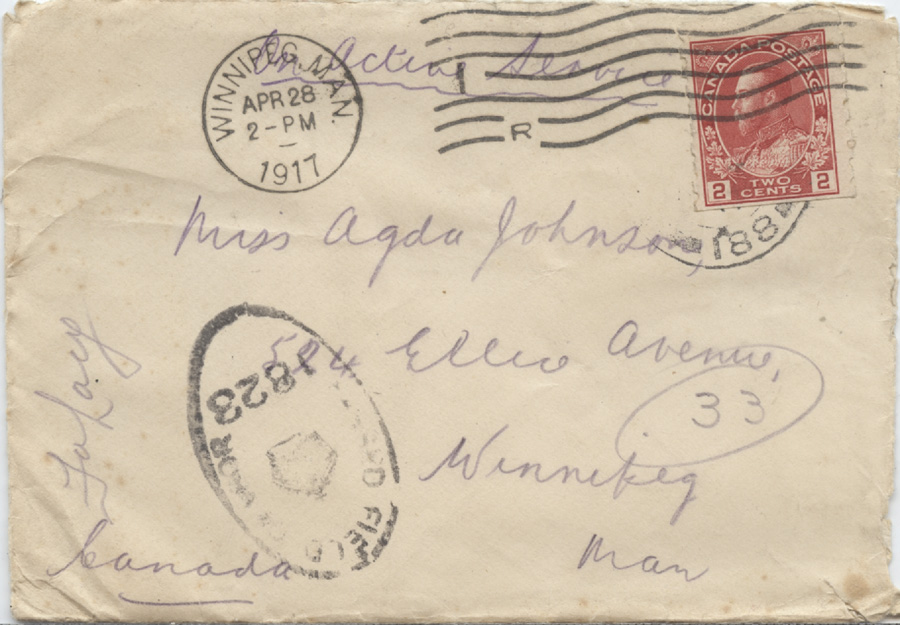 On Active Service
WINNIPEG, MAN.
APR 28
2-PM
1917
R
CANADA POSTAGE
2 TWO CENTS 2
188
Miss Agda Johnson,
Ellice Avenue,
33
Winnipeg
Man
Canada
1823
FIELD